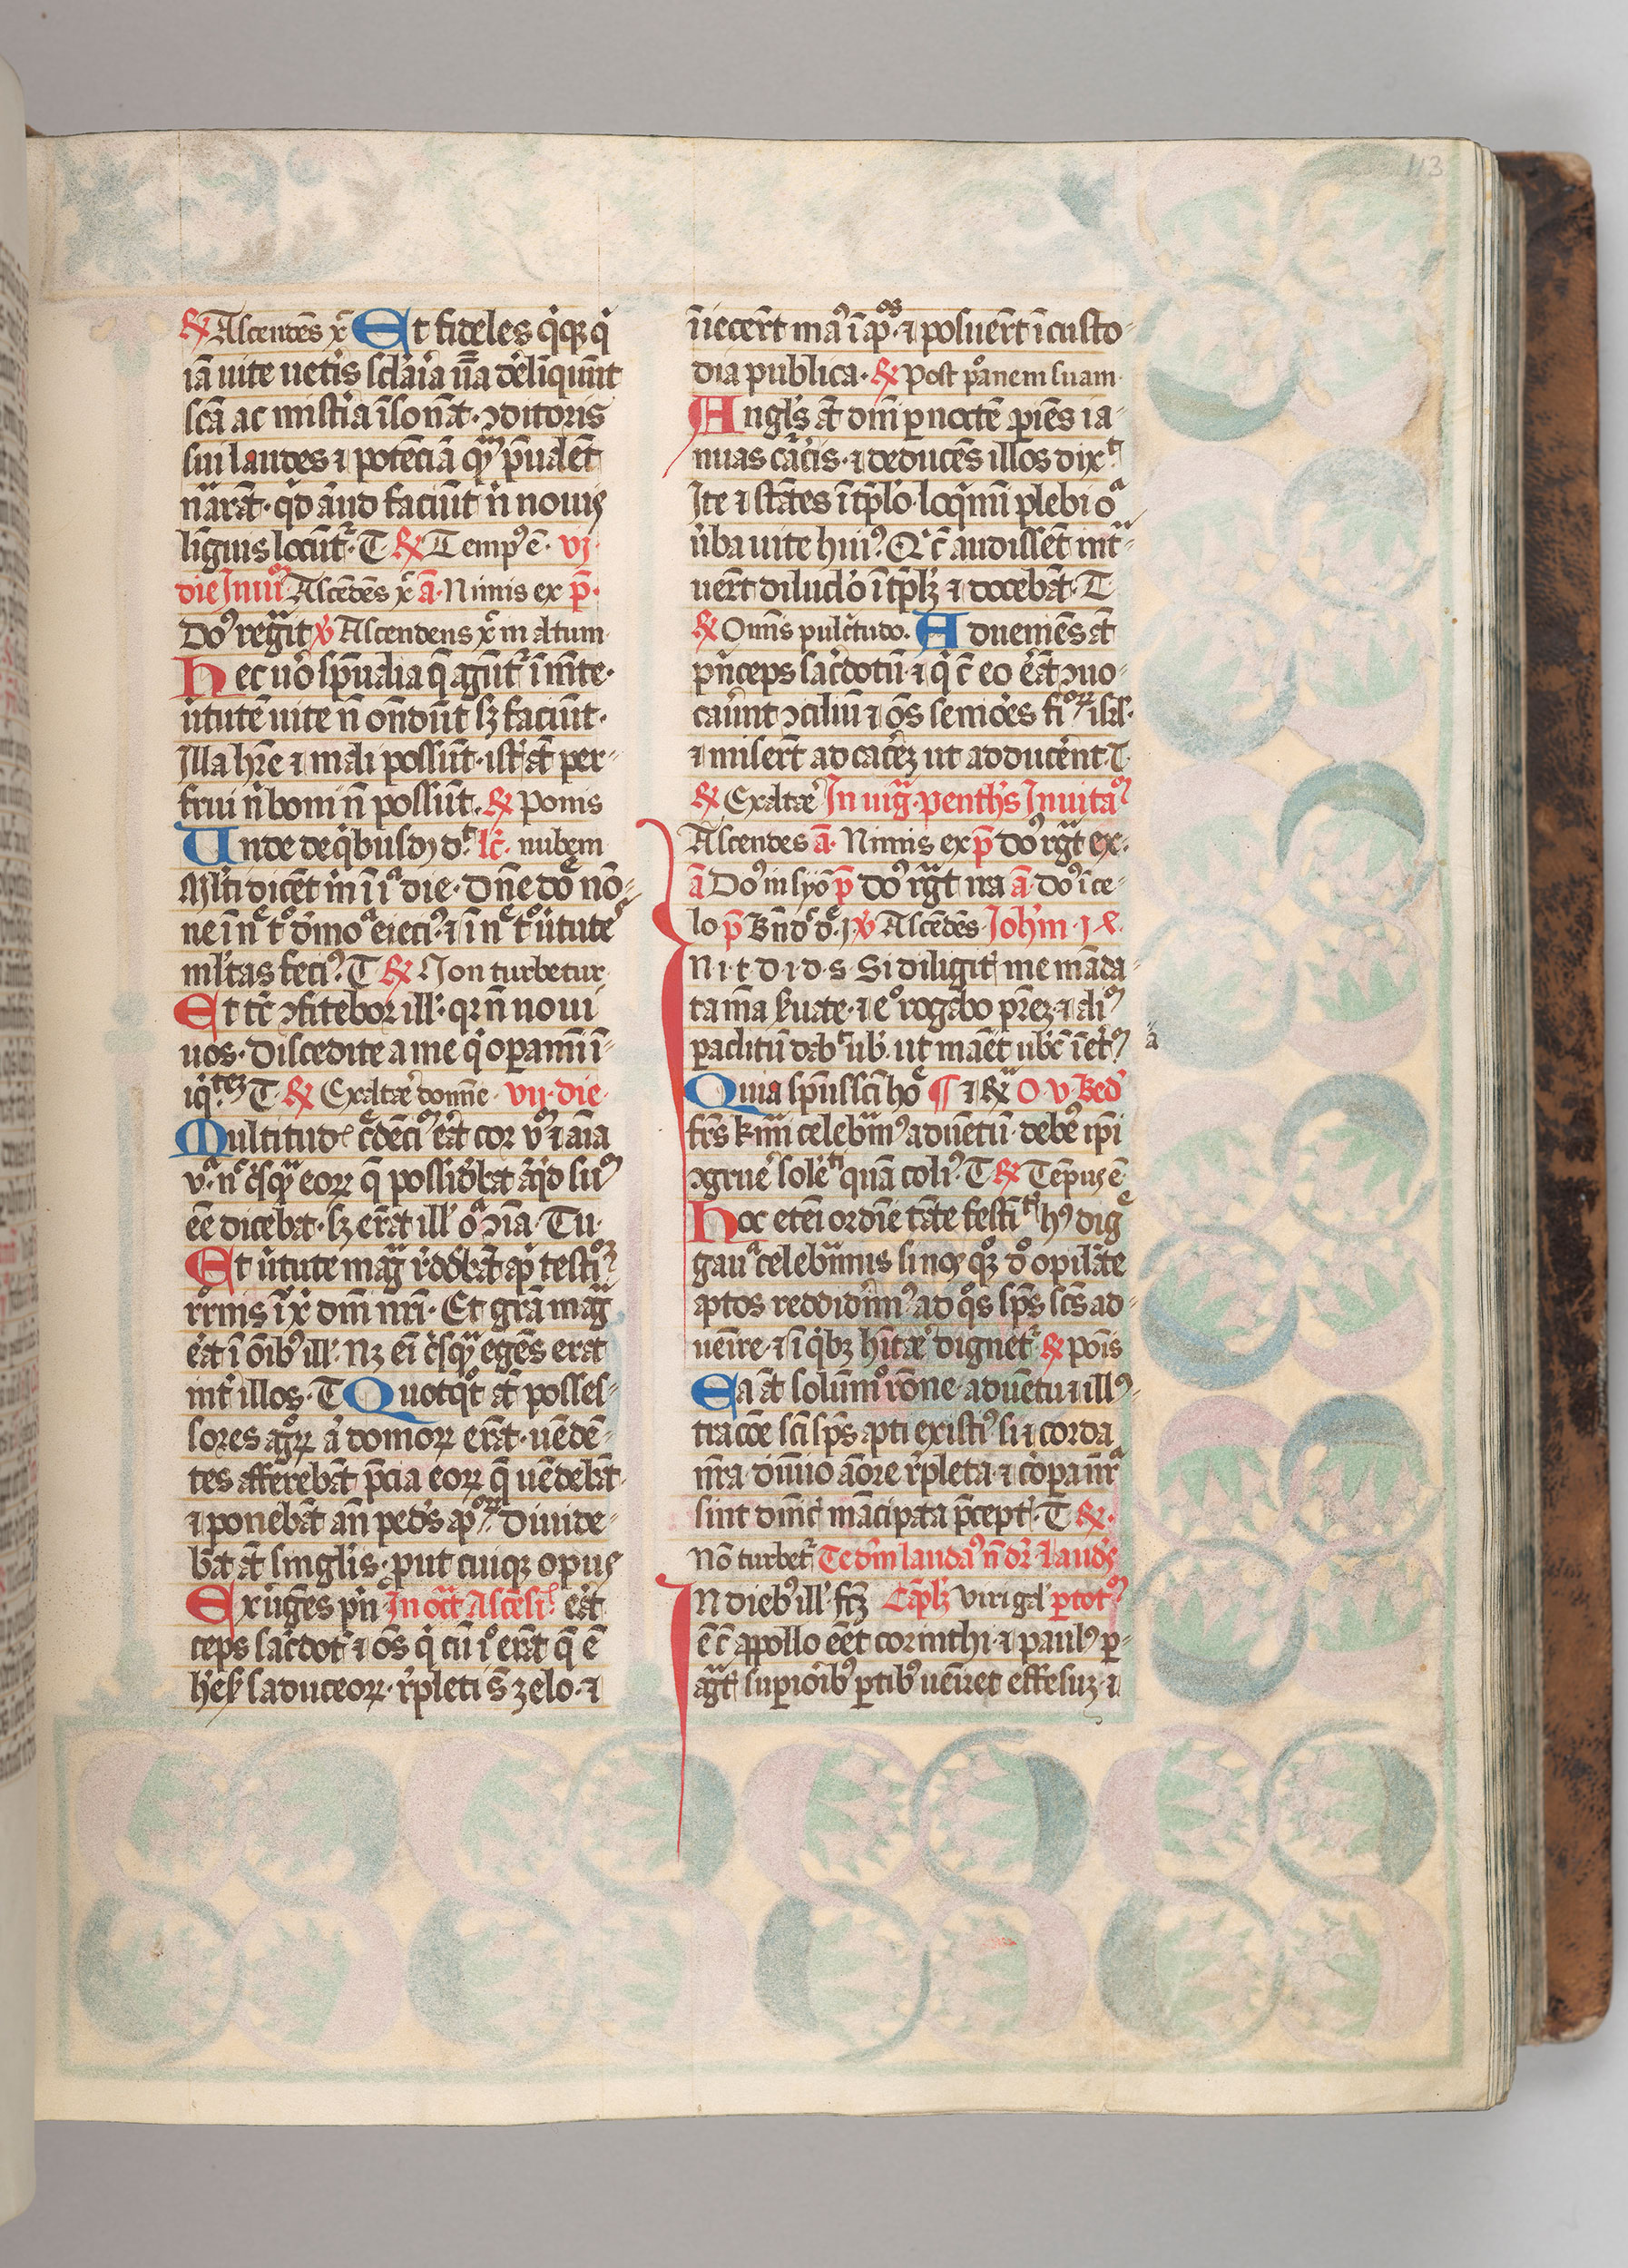 113
℟ Ascendēs xp̄ Et fideles q̇qꝫ q̇
iā uite uetis sclaria ūba deliquūt
scā ac mistia īsonāt · ꝯditoris
sui laudes ⁊ potēciā
narāt · qd̄ aīud faciūt n̄ nouis
linguis locūt᷑ · T ℟ Temp᷒ ē · vj
die Inuit᷑ Ascēdēs xp̄ ā · Nimis ex p̄ ·
Do᷒ regͣit ꝟ Ascendens xp̄ in altum
Hec uº sp̄uālia q̄ agūt᷑ ī mēte ·
ūtutē uite n̄ on̄dūt sꝫ faciūt ·
Illa hr̄e ⁊ mali possūt · isti āt per-
frui n̄ boni n̄ possūt · ℟ Ponis
Unde de q̇busdā dr̄ · lc̄ · nubem
Mlti dicēt m̄ ī iª die · Dn̄e dō nō-
ne ī nōīe tº dmōª eieci᷒ · ⁊ ī nōīe tº ūtute᷒
ml̄tas feci᷒ · T ℟ Non turbetur
Et tc̄ ꝯfitebor ill᷒ · qꝛ n̄ noui
uos · Discedite a me q̇ opamī ī-
iq̇tatē T · ℟ Exaltare domine · vij · die
Multitud᷒ c̄dēci᷒ erāt cor vº ⁊ aīa
vª · n᷒ q̇sqͣ eoꝝ q̄ possidebāt aq̇d su᷒
eē dicebat · sꝫ erāt ill᷒ oīa ꝯīa · Tu
Et ūtute magͣ rddebāt ap̄ testi
r̄rnis iħ xp̄ dn̄i nr̄i · Et grā magͣ
erāt ī oīb᷒ ill᷒ · Nꝫ ei q̇sqͣ egēs erat
int᷑ illos · T Quotqt̄ āt posses-
sores agroꝝ aut domoꝝ erāt · uēdē-
tes afferebāt p̄cia eoꝝ q̄ uēdebāt
⁊ ponebāt an̄ pedes ap̄ºꝝ diuide-
bāt āt singlis · put cuiqꝫ opus
Exugēs pn̄ In octͣ Ascēsi᷒ erāt
ceps sacdot᷑ ⁊ oēs q̇ cū iº erāt q̄ ē
heꝭ saduceoꝝ · rpleti s̄ zelo · ⁊
iniecert̄ ma᷒ ī ap̄ºs · ⁊ posuert̄ ī custo-
dia publica · ℟ Post passionem suam
Angl᷒s āt dn̄i p noctē apiēs ia-
nuas carcis · ⁊ deducēs illos dixit
Ite ⁊ stātes ī tp̄lo · loqmi plebi oª
ūba uite hui᷒ · Q c̄ audissēt int-
uert̄ diluclo ī tp̄lꝫ ⁊ docebāt · T
℟ Omīs pulctudo · Adueniēs āt
p̄nceps sacdotū · ⁊ q̇ c̄ eo erāt ꝯuo-
cauert ꝯciliū ⁊ oēs seniores fiºꝝ isrl ·
⁊ misert̄ ad carcē ut adducent · T
℟ Exaltare In uigͣ · penthes Inuita᷒
Ascendes ā · Nimis ex p̄ do᷒ rgͣt ex ·
ā Do᷒ in syō p̄ do᷒ rgͣt na ā · do᷒ ī ce-
lo p̄ Bn̄dc · j ꝟ Ascēdēs · Johīn · j l ·
In · i · t · d · i · d · s · Si diligit᷑ me māda-
ta mea suate · ⁊ eº rogabo prēꝫ · ⁊ ali᷒
paclitū dab᷑ ub᷒ · ut manēt ubc᷑ ī et᷑
Quia sp̄us sc̄i ho ¶ ⁊ ℟ O · v · Bed᷒
frēs kmi celebm᷒ aduētū · debē ipi
ꝯgrue solēt quā coli᷒ · T ℟ Tēpus ē
Hoc eteī ordīe tāte festi · h᷒ dig
gauª celebmis si nos qꝫ dº opilāte
aptos reddidim᷒ ad qs sp̄s sc̄s ad-
uenire · ⁊ ī q̇bꝫ hitare dignet᷑ ℟ Pois
Ea āt solūmº rōne · aduētu ⁊ ill᷒-
tracōe sc̄i sp̄s apti existi᷒ si ⁊ corda
nr̄a diuīo aōre rpleta ⁊ corpa nr̄a
sint dn̄ic᷑ mācipata p̄cept᷒ · T ℟ ·
Nō turbet᷑ Te dm̄ laudam᷒ n̄ dr̄ · laudes
In dieb᷒ ill᷒ · fcꝫ Capl̄ꝫ Viri gal᷒ p tot᷒
ē c̄ appollo eēt corinthi · ⁊ paul᷒ p-
agͣt᷑ supiorib᷒ ptib᷒ ueniret effesuꝫ · ⁊